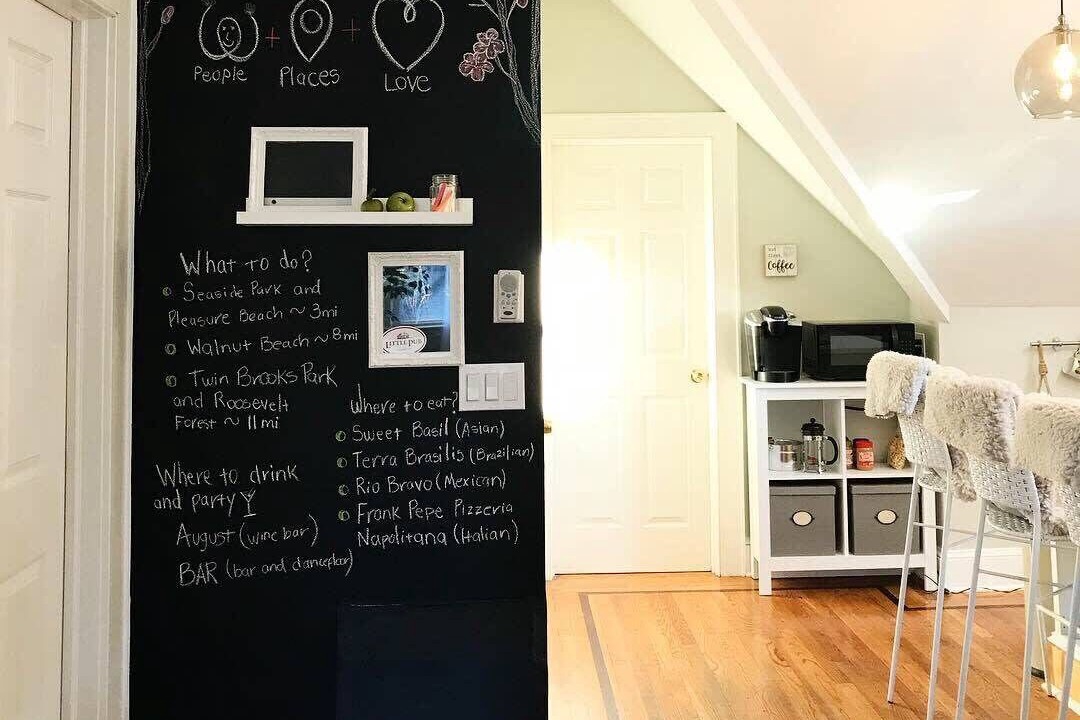 People + Places + Love
What to do?
Seaside Park and
Pleasure Beach ~ 3mi
Walnut Beach ~ 8mi
Twin Brooks Park
and Roosevelt
Forest ~ 11mi
Where to drink
and party
August (wine bar)
BAR (bar and dancefloor)
LITTLE PUB
Where to eat?
Sweet Basil (Asian)
Terra Brasilis (Brazilian)
Rio Bravo (Mexican)
Frank Pepe Pizzeria
Napolitana (Italian)
Coffee